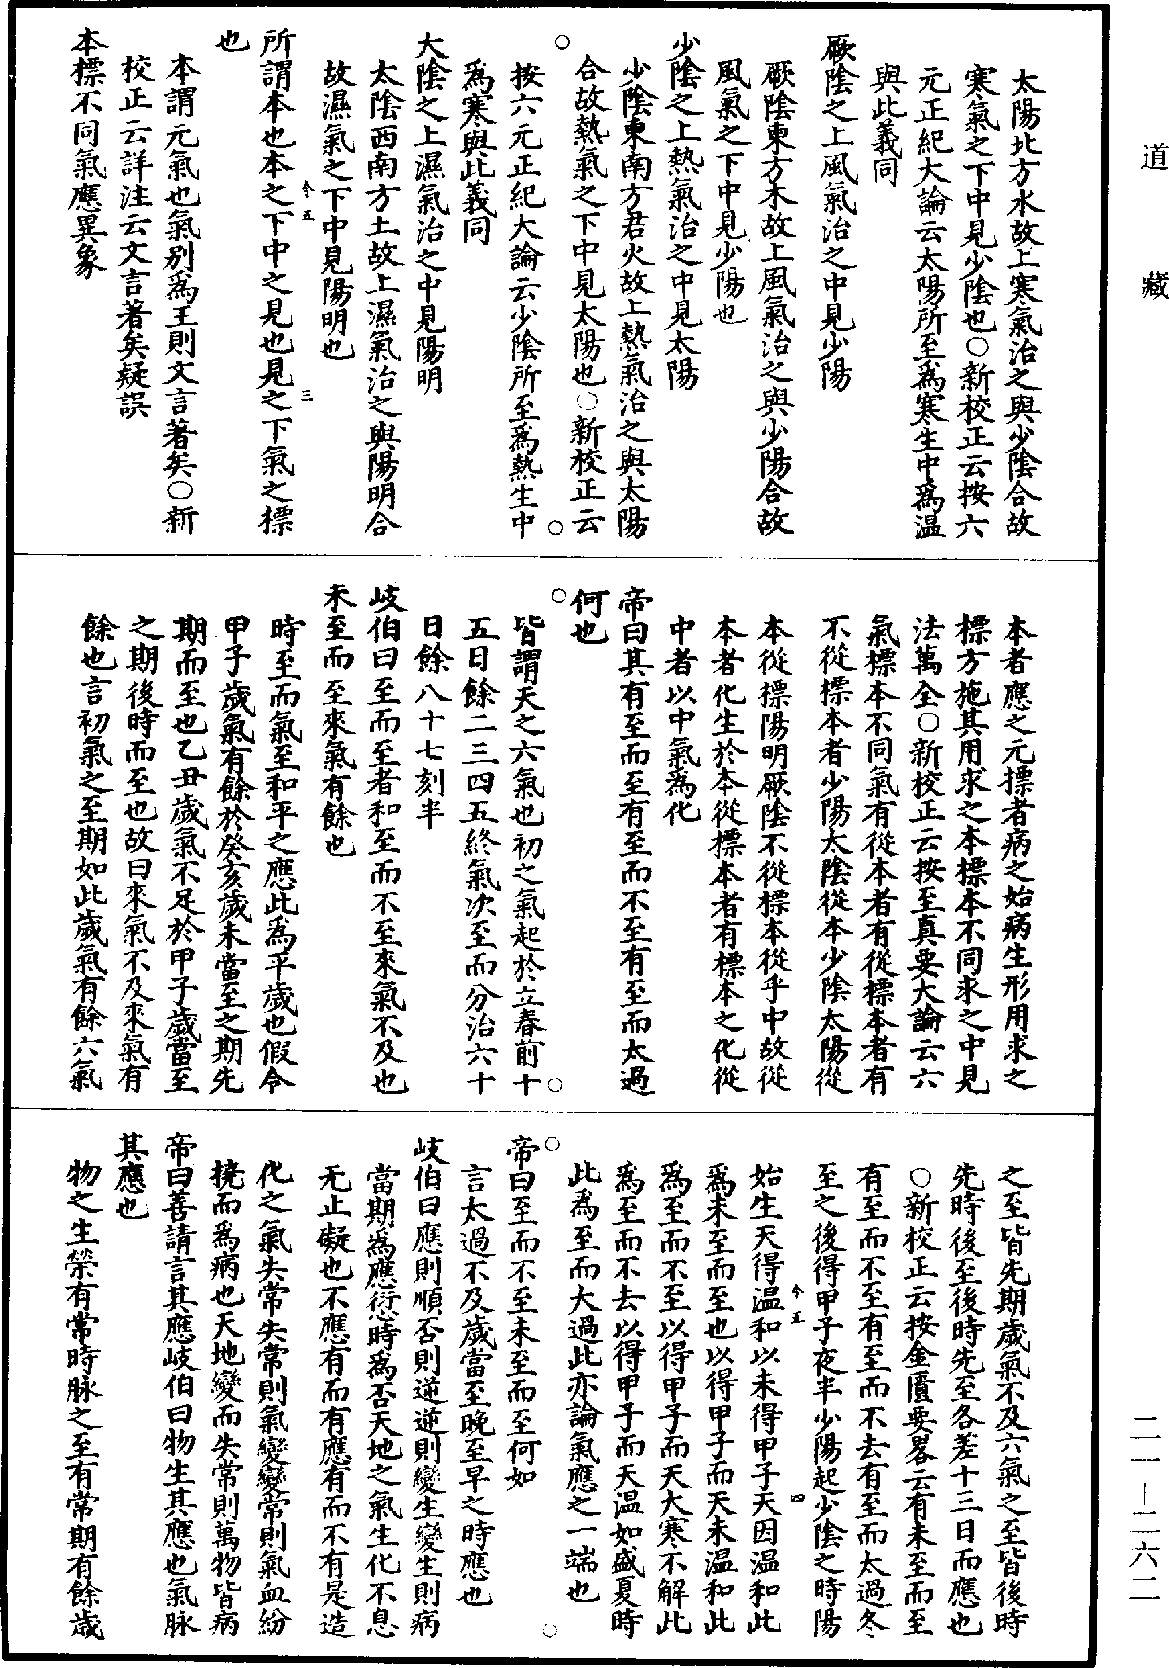 道藏
太陽北方水故上寒氣治之與少陰合故
寒氣之下中見少陰也○新校正云按六
元正紀大論云太陽所至爲寒生中爲温
與此義同
厥陰之上風氣治之中見少陽
厥陰東方木故上風氣治之與少陽合故
風氣之下中見少陽也
少陰之上熱氣治之中見太陽
少陰東南方君火故上熱氣治之與太陽
合故熱氣之下中見太陽也○新校正云
按六元正紀大論云少陰所至爲熱生中
爲寒與此義同
大陰之上濕氣治之中見陽明
太陰西南方土故上濕氣治之與陽明合
故濕氣之下中見陽明也
今五 三
所謂本也本之下中之見也見之下氣之標
也
本謂元氣也氣别爲王則文言著矣○新
校正云詳注云文言著矣疑誤
本標不同氣應異象
本者應之元標者病之始病生形用求之
標方施其用求之本標本不同求之中見
法萬全○新校正云按至真要大論云六
氣標本不同氣有從本者有從標本者有
不從標本者少陽太陰從本少陰太陽從
本從標陽明厥陰不從標本從乎中故從
本者化生於本從標本者有標本之化從
中者以中氣為化
帝曰其有至而至有至而不至有至而太過
何也
皆謂天之六氣也初之氣起於立春前十
五日餘二三四五終氣次至而分治六十
日餘八十七刻半
岐伯曰至而至者和至而不至來氣不及也
未至而至來氣有餘也
時至而氣至和平之應此爲平歲也假令
甲子歲氣有餘於癸亥歲未當至之期先
期而至也乙丑歲氣不足於甲子歲當至
之期後時而至也故曰來氣不及來氣有
餘也言初氣之至期如此歲氣有餘六氣
之至皆先期歲氣不及六氣之至皆後時
先時後至後時先至各差十三日而應也
○新校正云按金匱要畧云有未至而至
有至而不至有至而不去有至而太過冬
至之後得甲子夜半少陽起少陰之時陽
今五 四
始生天得温和以未得甲子天因温和此
爲未至而至也以得甲子而天未温和此
爲至而不至以得甲子而天大寒不解此
爲至而不去以得甲子而天温如盛夏時
此爲至而大過此亦論氣應之一端也
帝曰至而不至未至而至何如
言太過不及歲當至晚至早之時應也
岐伯曰應則順否則逆逆則變生變生則病
當期爲應愆時爲否天地之氣生化不息
无止礙也不應有而有應有而不有是造
化之氣失常失常則氣變變常則氣血紛
撓而爲病也天地變而失常則萬物皆病
帝曰善請言其應岐伯曰物生其應也氣脉
其應也
物之生榮有常時脉之至有常期有餘歲
二一—二六二